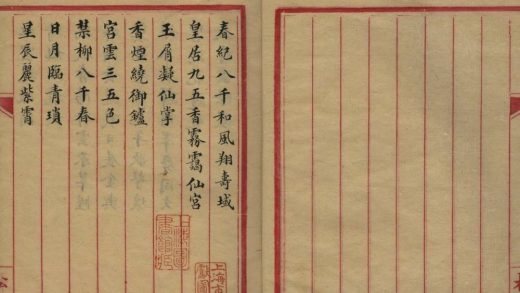 春紀八千和風翔壽域
皇居九五香霧靄仙宮
玉屑凝仙掌
香煙繞御鑪
宮雲三五色
禁柳八千春
日月臨青瑣
星辰麗紫霄